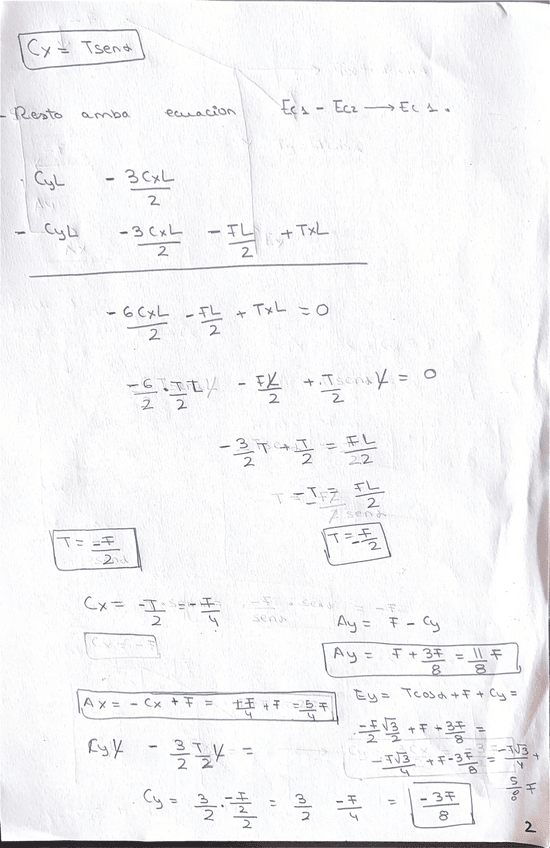 Cx = Tsenα
- Resto amba ecuacion Ec1 - Ec2 → Ec 1.
CyL - 3CxL/2
- CyL - 3CxL/2 - FL/2 + TxL
-6CxL/2 - FL/2 + TxL = 0
-6/2 · T/2 L - FL/2 + T/2 L = 0
-3/2 T + T/2 = FL/2
-T = FL/2
T = -F/2
T = -F/2
Cx = -T/2 = -F/4
Ay = F - Cy
Ay = F + 3F/8 = 11/8 F
Ax = -Cx + F = +F/4 + F = 5/4 F
Ey = Tcosα + F + Cy =
-F/2 √3/2 + F + 3F/8 =
CyL - 3/2 T/2 L =
-F√3/4 + F - 3F/8 = -F√3/4 +
5/8 F
Cy = 3/2 · -F/2/2 = 3/2 -F/4 = -3F/8
2